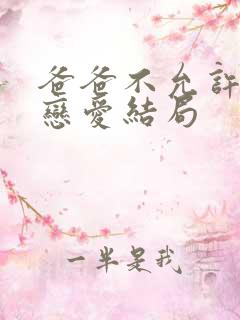 爸爸不允許
戀愛結局
一半是我